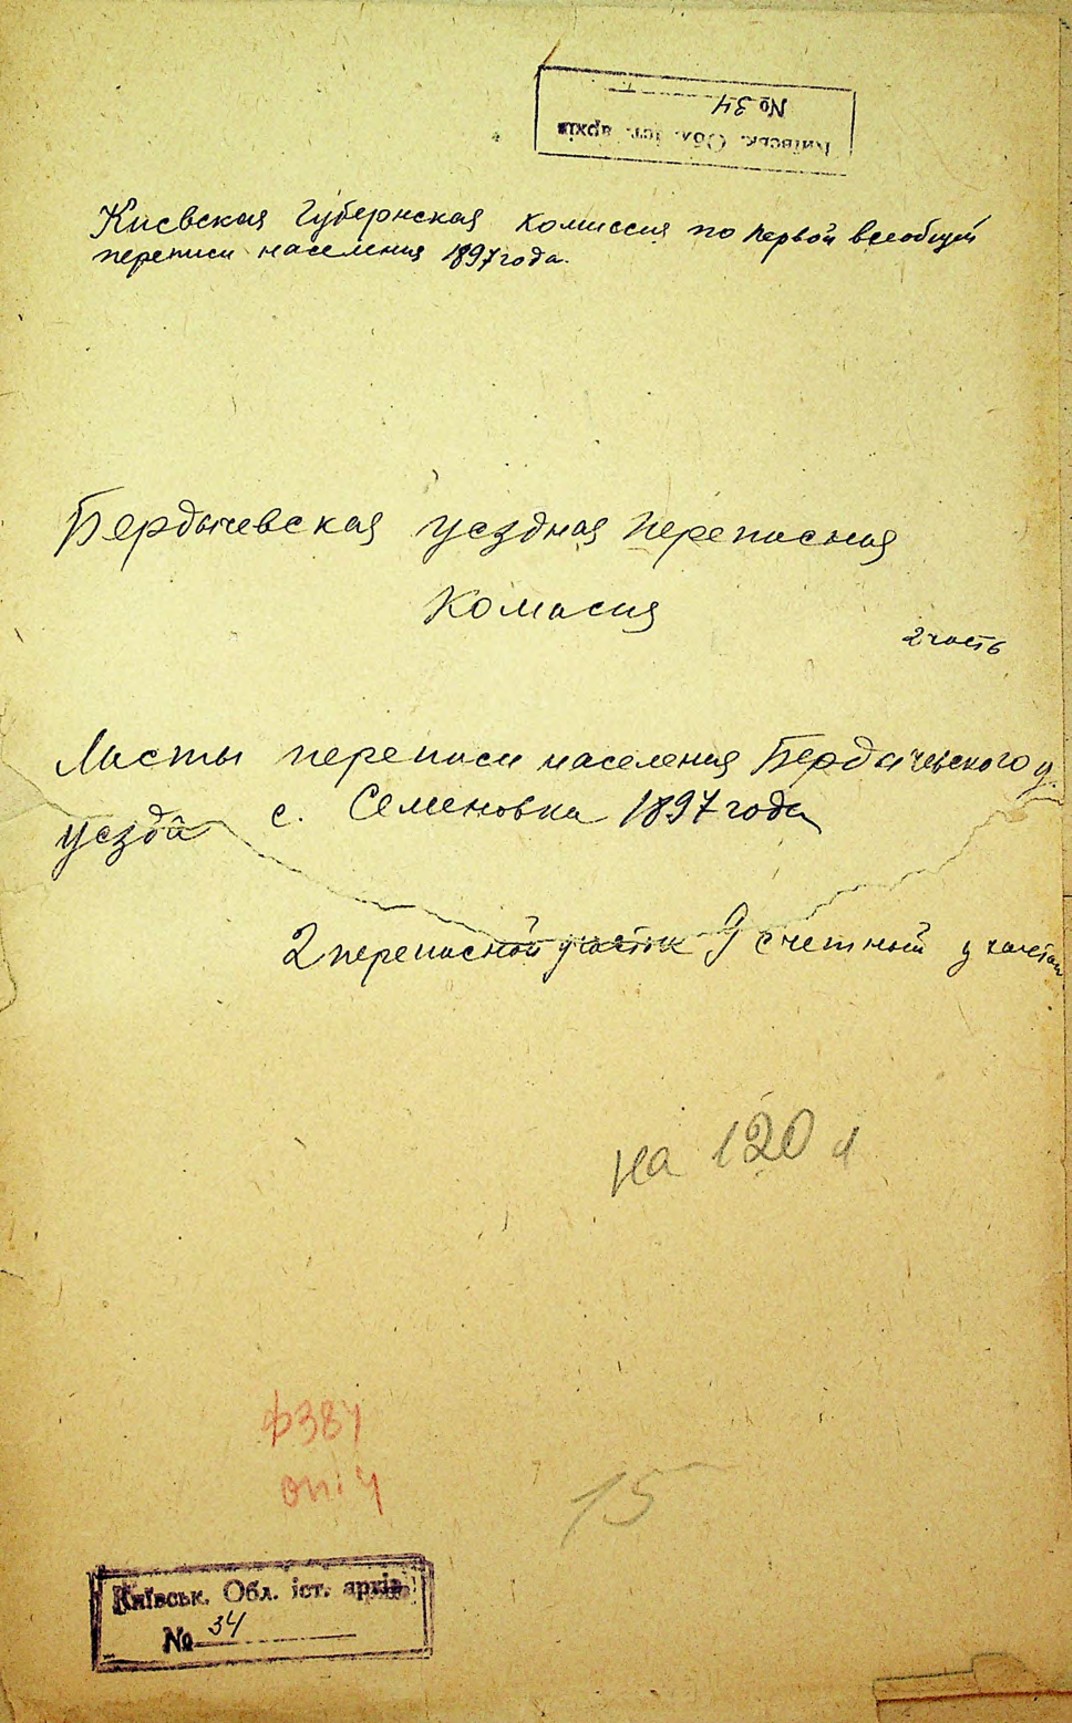 Київськ. Обл. іст. архів
№ 34
Киевская Губернская Комиссия по первой всеобщей
переписи населения 1897 года.
Бердычевская уездная переписная
Комисия
2 часть
Листы переписи населения Бердичевского у.
уезда с. Семеновка 1897 года
2 переписной участок 9 счетный участок
на 120 л
ф 384
оп. 4
15
Київськ. Обл. іст. архів
№ 34